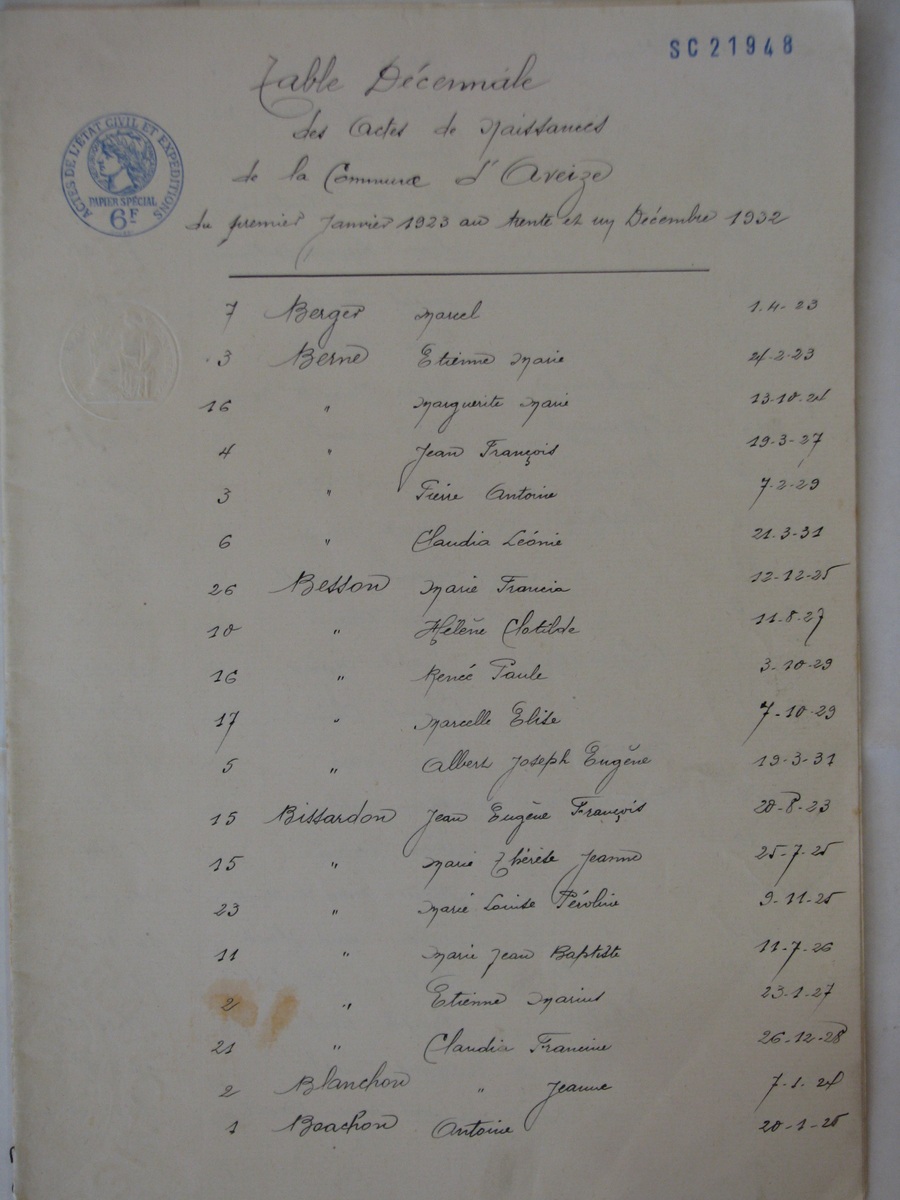 SC21948
Table Décennale
des Actes de Naissances
de la Commune d'Aveize
du premier Janvier 1923 au trente et un Décembre 1932
ACTES DE L'ÉTAT CIVIL ET EXPÉDITIONS
PAPIER SPÉCIAL
6F
7 Berger Marcel 1.4-23
3 Berne Etienne Marie 24-2-23
16 " Marguerite Marie 13-10-24
4 " Jean François 19-3-27
3 " Pierre Antoine 7-2-29
6 " Claudia Léonie 21.3-31
26 Besson Marie Francia 12-12-25
10 " Hélène Clotilde 11-8-27
16 " Renée Paule 3-10-29
17 " Marcelle Elise 7-10-29
5 " Albert Joseph Eugène 19-3-31
15 Bissardon Jean Eugène François 20-8-23
15 " Marie Thérèse Jeanne 25-7-25
23 " Marie Louise Péroline 9-11-25
11 " Marie Jean Baptiste 11-7-26
2 " Etienne Marius 23-1-27
21 " Claudia Francine 26-12-28
2 Blanchon " Jeanne 7-1-24
1 Boachon Antoine 20-1-25